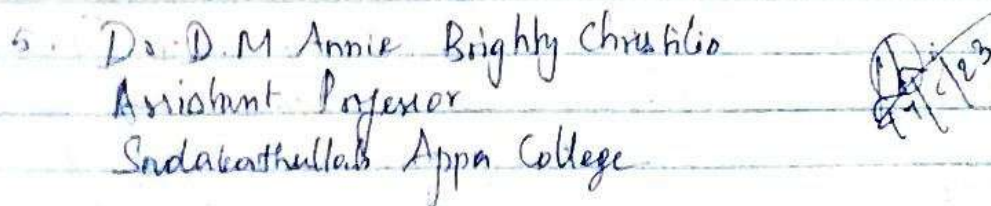 5. Dr. D.M Annie Brighty Christilio
Assistant Professor
Sadakathullah Appa College